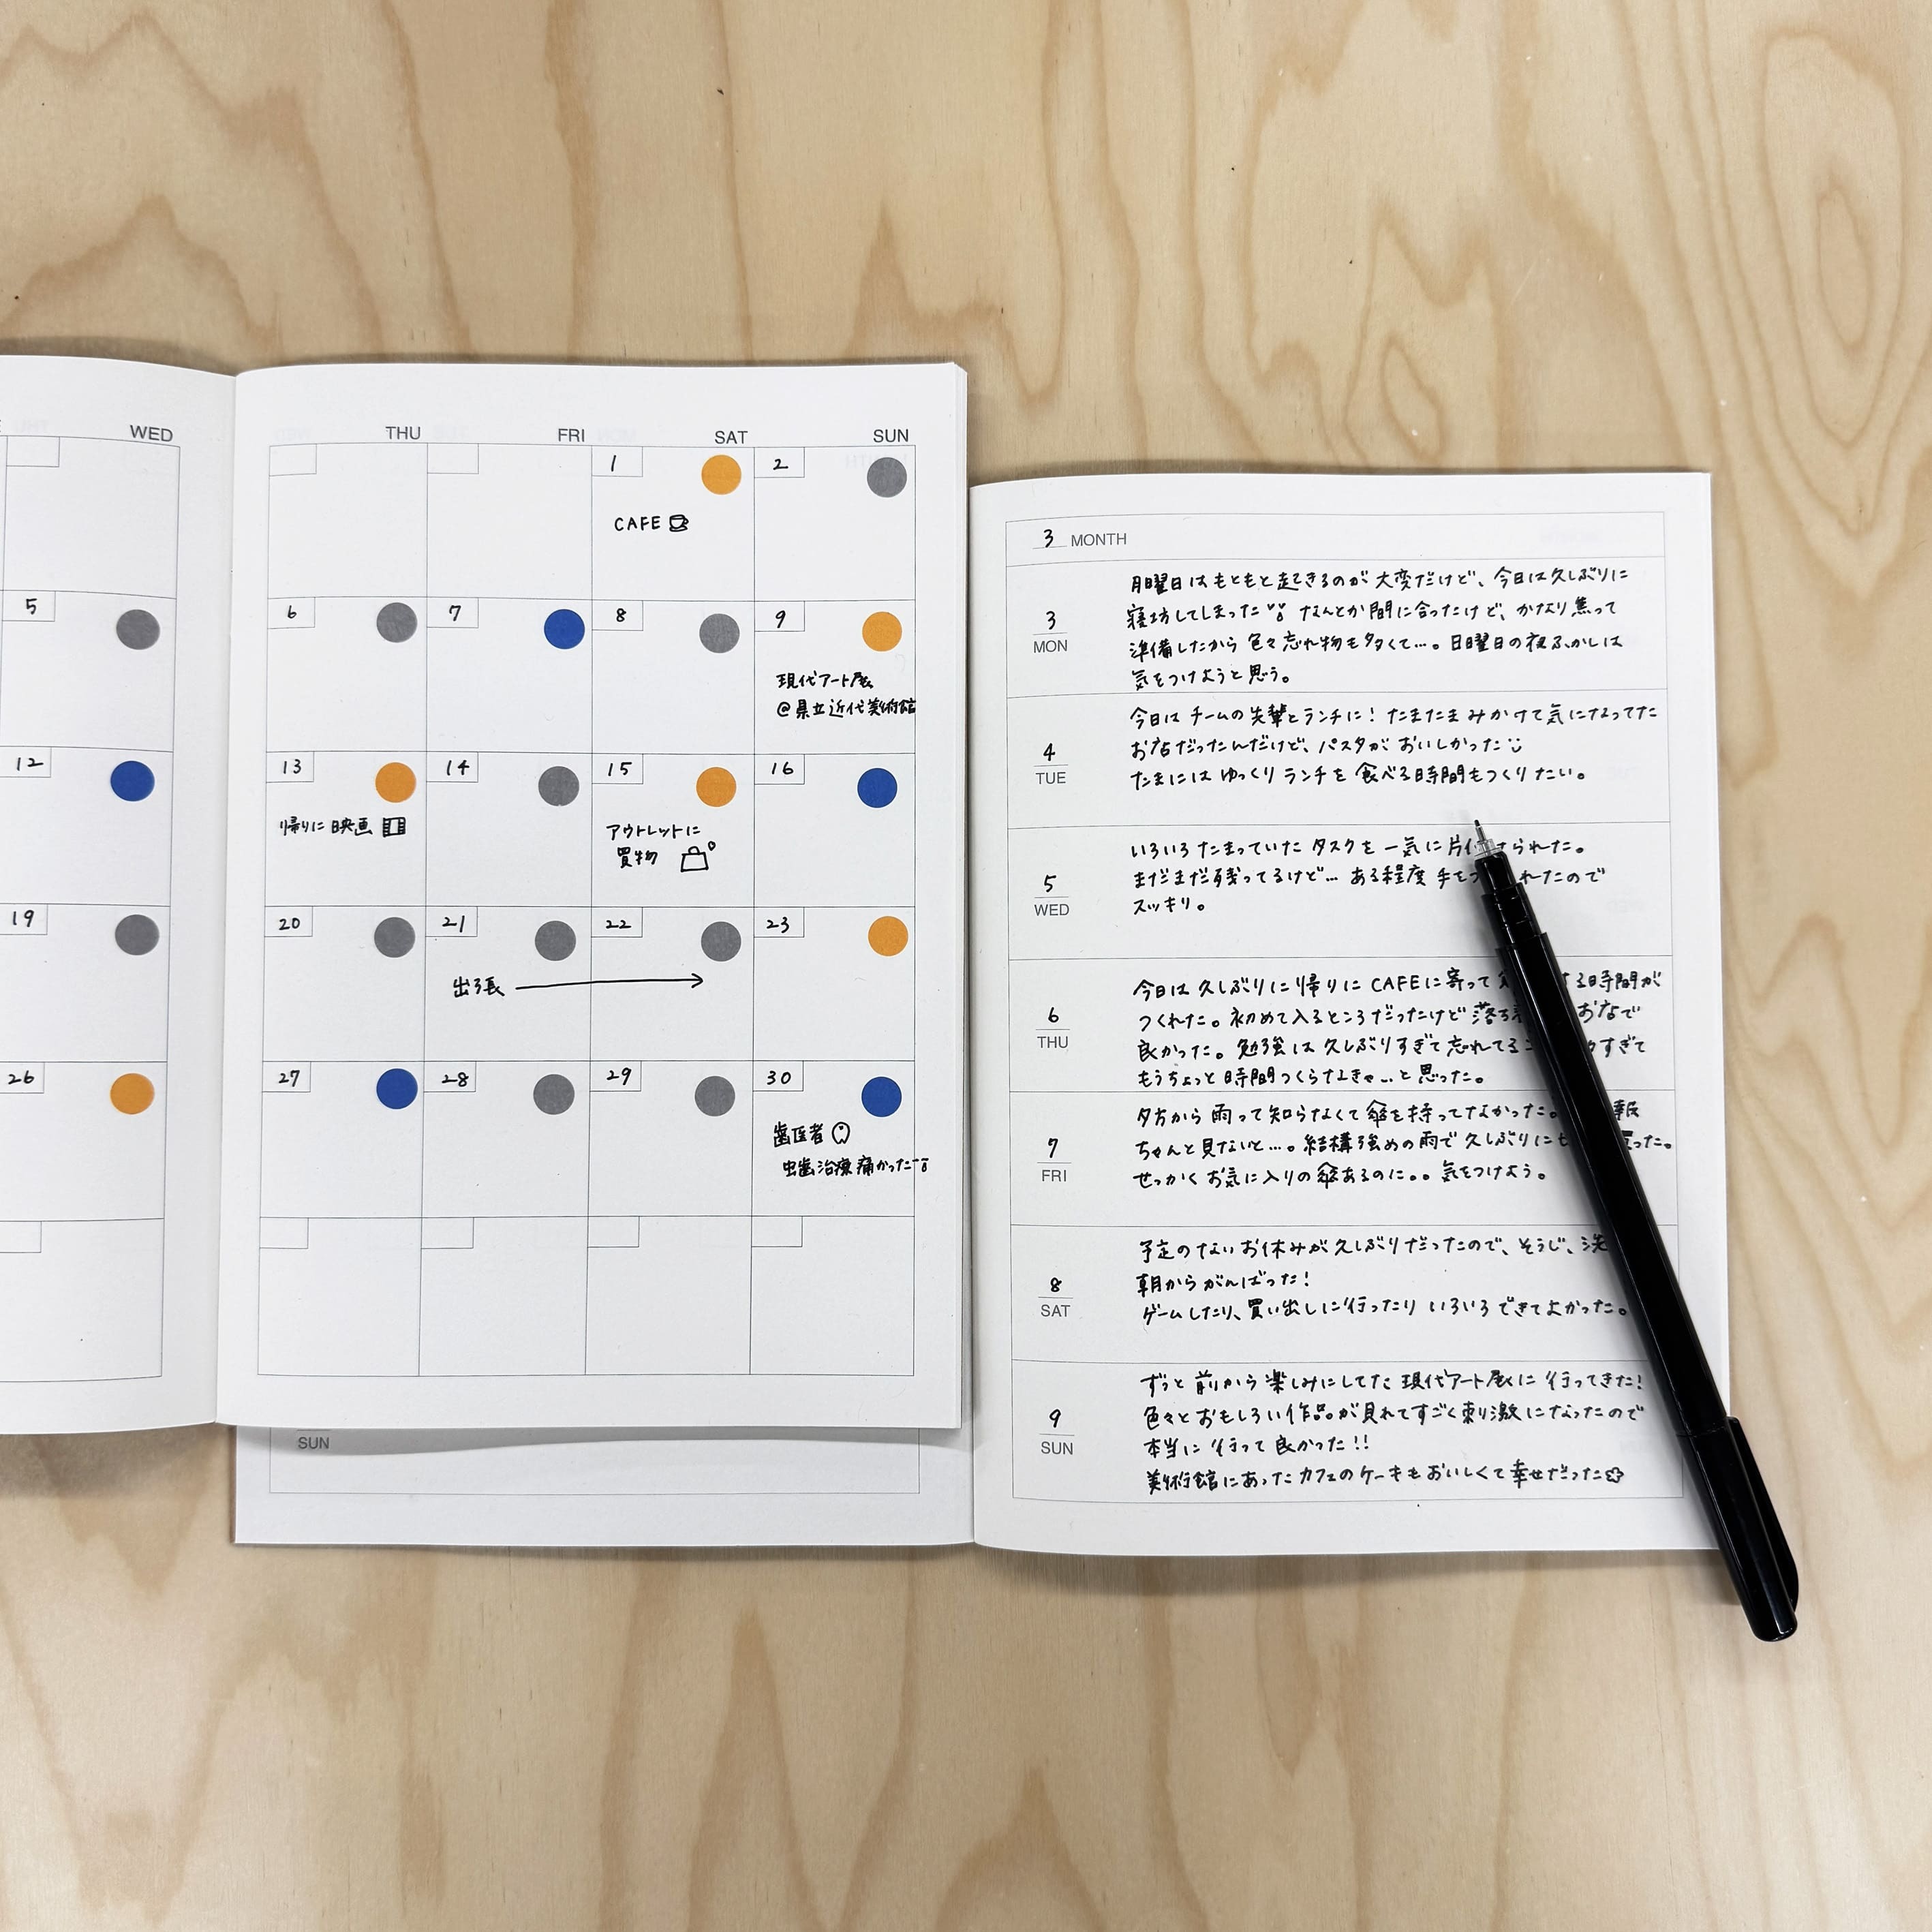 WED
5
12
19
26
THU
FRI
SAT
SUN
1
2
CAFE
6
7
8
9
現代アート展
@県立近代美術館
13
14
15
16
帰りに映画
アウトレットに
買物
20
21
22
23
出張
27
28
29
30
歯医者
虫歯治療痛かった
SUN
3 MONTH
3
MON
月曜日はもともと起きるのが大変だけど、今日は久しぶりに
寝坊してしまった なんとか間に合ったけど、かなり焦って
準備したから色々忘れ物も多くて…。日曜日の夜ふかしは
気をつけようと思う。
4
TUE
今日はチームの先輩とランチに！たまたまみかけて気になってた
お店だったんだけど、パスタがおいしかった
たまにはゆっくりランチを食べる時間もつくりたい。
5
WED
いろいろたまっていたタスクを一気に片付けられた。
まだまだ残ってるけど…ある程度手をつ れたので
スッキリ。
6
THU
今日は久しぶりに帰りにCAFEに寄って する時間が
つくれた。初めて入るところだったけど落ち おなで
良かった。勉強は久しぶりすぎて忘れてるこ すぎて
もうちょっと時間つくらなきゃ…と思った。
7
FRI
夕方から雨って知らなくて傘を持ってなかった。 報
ちゃんと見ないと…。結構強めの雨で久しぶりに 買った。
せっかくお気に入りの傘あるのに。。気をつけよう。
8
SAT
予定のないお休みが久しぶりだったので、そうじ、洗
朝からがんばった！
ゲームしたり、買い出しに行ったりいろいろできてよかった。
9
SUN
ずっと前から楽しみにしてた現代アート展に行ってきた！
色々とおもしろい作品が見れてすごく刺激になったので
本当に行って良かった！！
美術館にあったカフェのケーキもおいしくて幸せだった